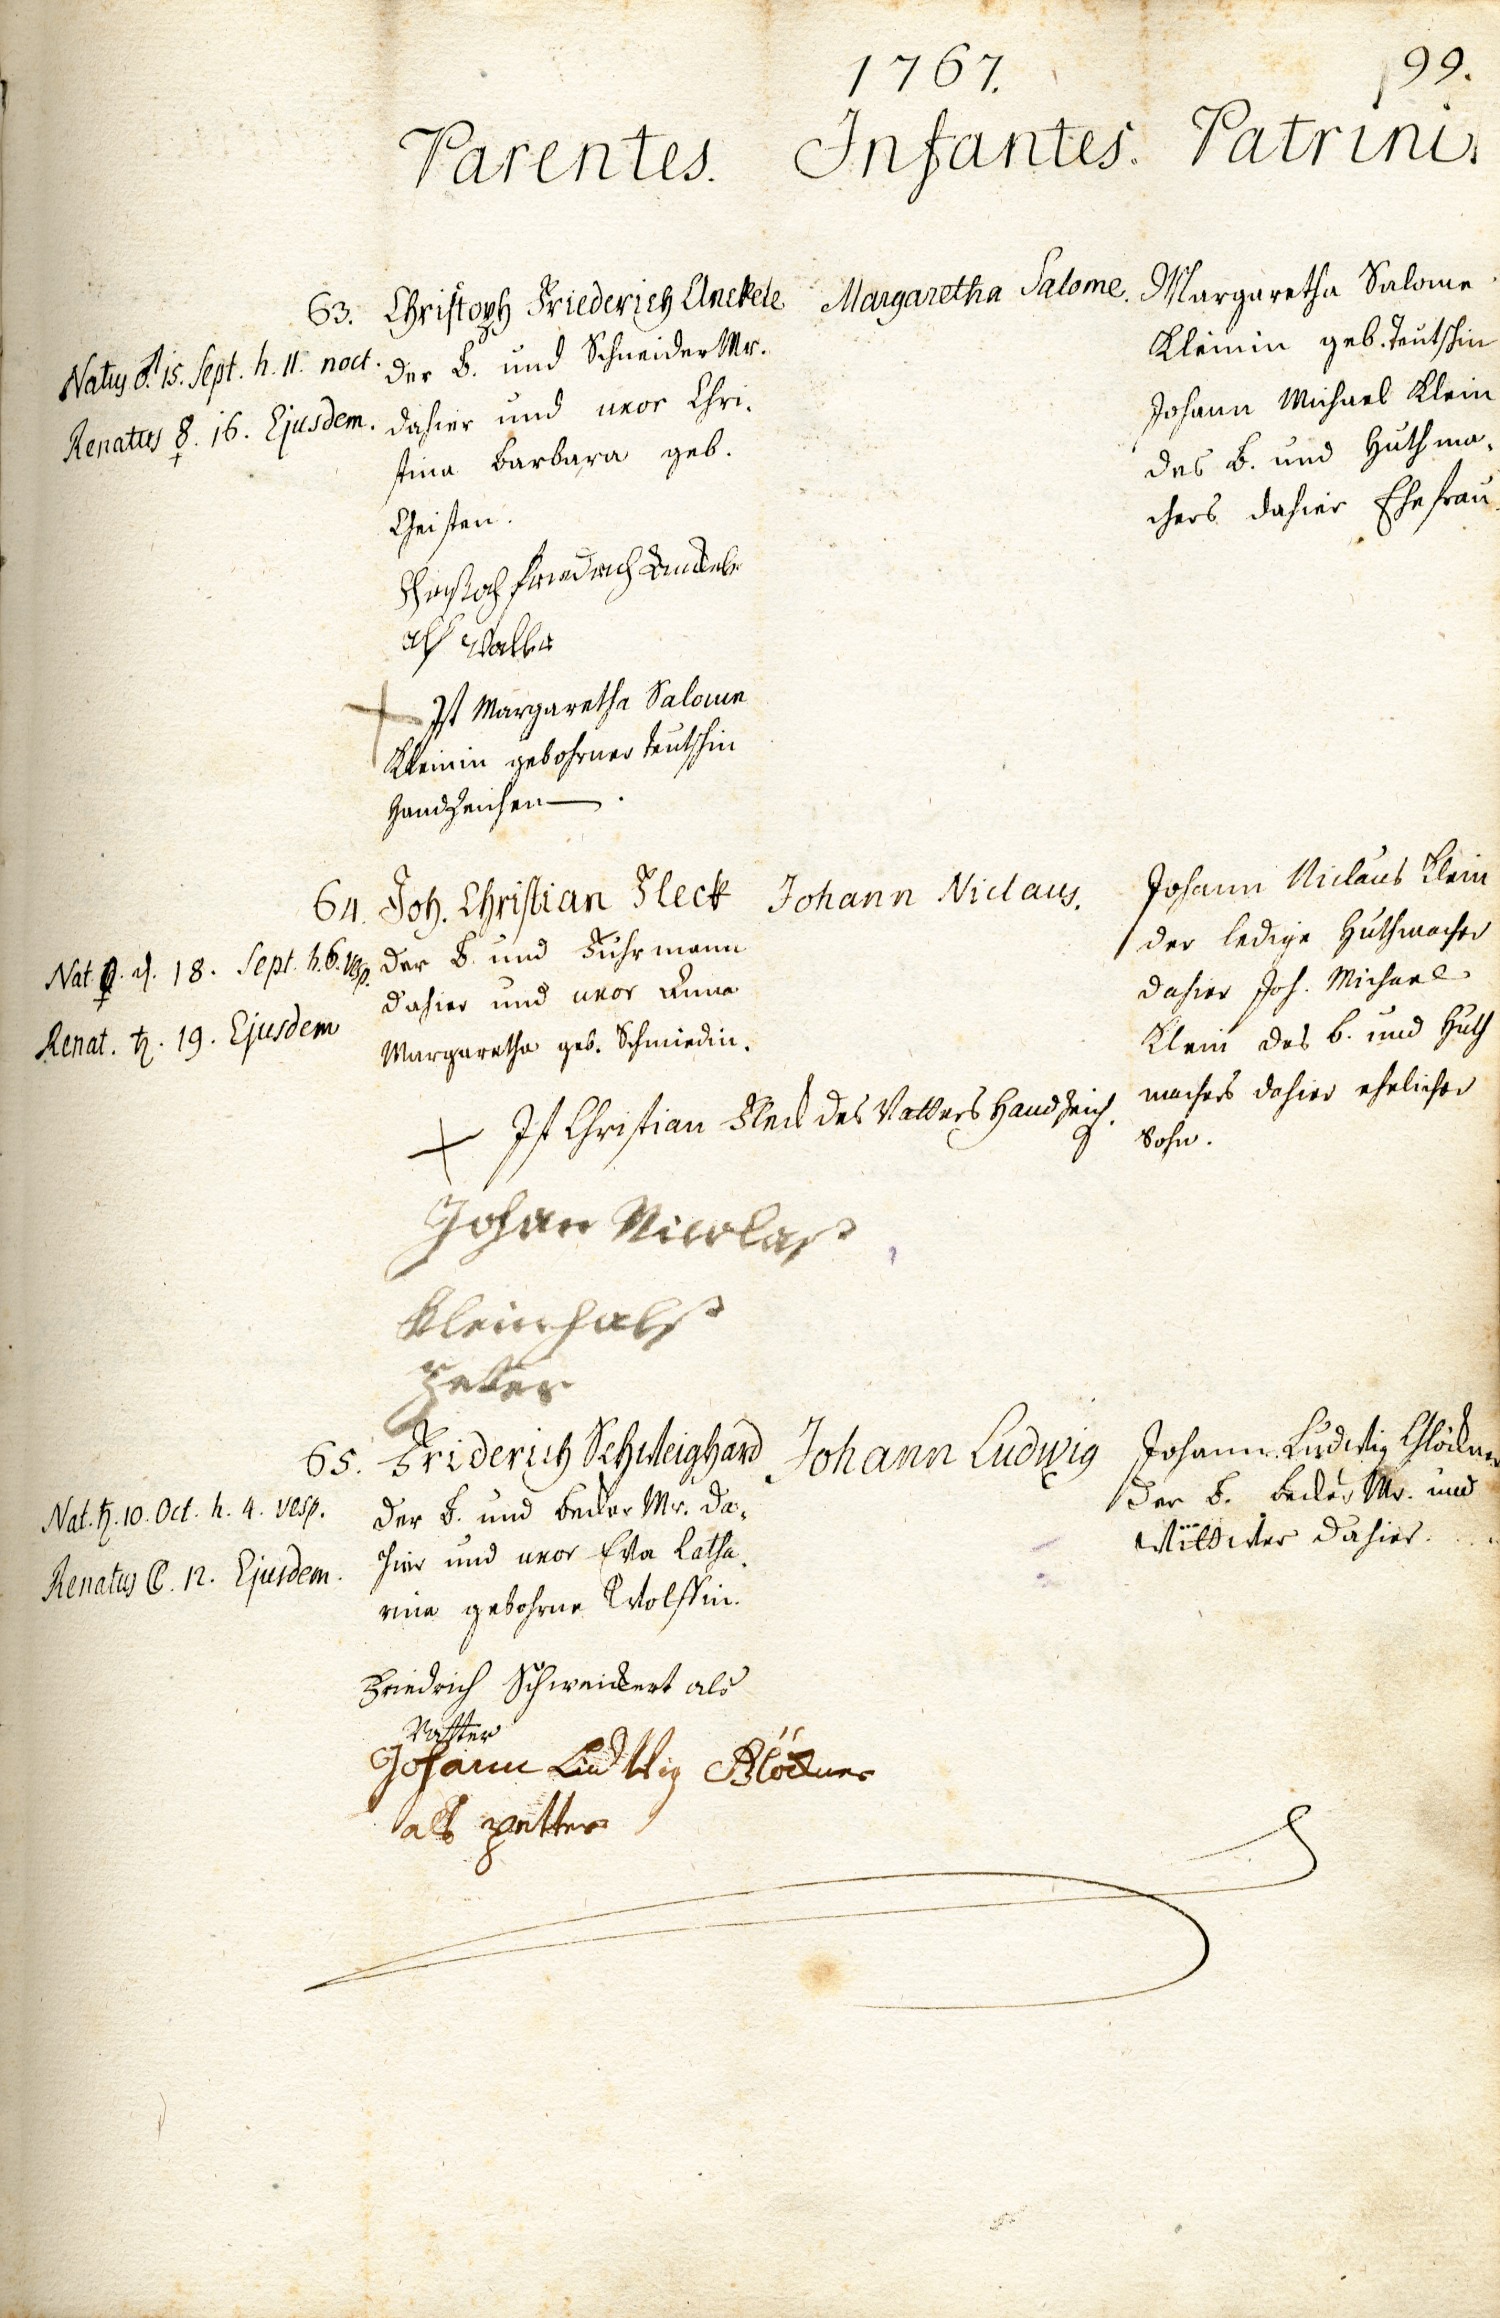 1767.
99.
Parentes. Infantes. Patrini.
63. Christoph Friederich Anckele
Natus ♂. 15. Sept. h. 11. noct.
Renatus ☿. 16. Ejusdem.
der B. und Schneider Mr.
dahier und uxor Chri-
stina Barbara geb.
Christen.
Margaretha Salome.
Margaretha Salome
Kleinin geb. Teutschin
Johann Michael Klein
des B. und Huthma-
chers dahier Ehefrau
Christoph Friedrich
alß Vatter
Ist Margaretha Salome
Kleinin gebohrner Teutschin
Handzeichen.
64. Joh. Christian Fleck
Nat. ♀. d. 18. Sept. h. 6. vesp.
Renat. ♄. 19. Ejusdem
der B. und Fuhrmann
dahier und uxor Anna
Margaretha geb. Schmiedin.
Johann Niclaus.
Johann Niclaus Klein
der ledige Huthmacher
dahier Joh. Michael
Klein des B. und Huth
machers dahier ehelicher
Sohn.
Ist Christian Fleck des Vatters Handzeich.
Johan Nicolaß
Klein halß
Petter
65. Friderich Schweighard
Nat. ♄. 10. Oct. h. 4. vesp.
Renatus ☾. 12. Ejusdem.
der B. und Becker Mr. da-
hier und uxor Eva Catha-
rina gebohrne Wolffin.
Johann Ludwig
Johann Ludwig Glöckner
der B. Becker Mr. und
Wittwer dahier.
Friedrich Schweickert als
Vatter
Johann Ludwig Klöckner
als petter